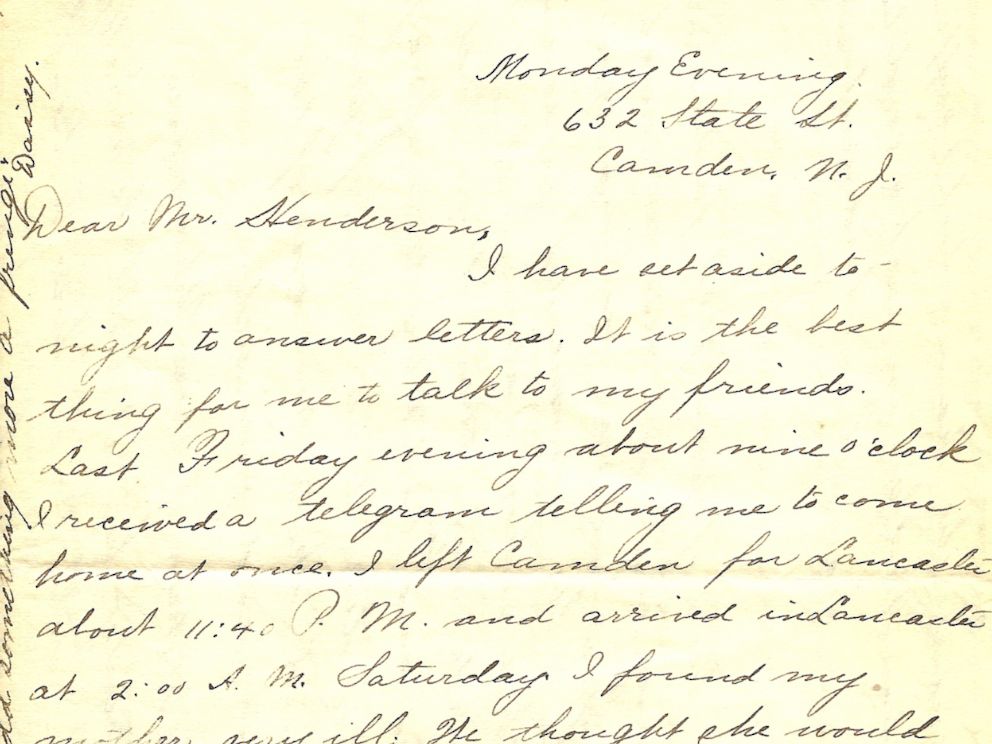 Monday Evening.
632 State St.
Camden, N. J.
Dear Mr. Henderson,
I have set aside to-
night to answer letters. It is the best
thing for me to talk to my friends.
Last Friday evening about nine o'clock
I received a telegram telling me to come
home at once. I left Camden for Lancaster
about 11:40 P. M. and arrived in Lancaster
at 2:00 A. M. Saturday. I found my
mother very ill. We thought she would
something more a
Daisy.